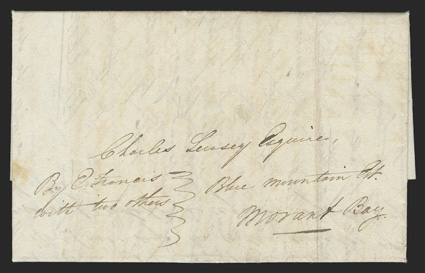 Charles Lewsey Esquire,
By C. Francis
with two others
Blue Mountain Est.
Morant Bay